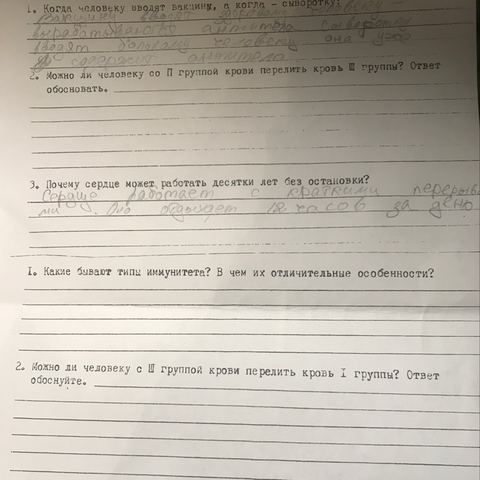 1. Когда человеку вводят вакцину, а когда - сыворотку?
Вакцины вводят здоровому человеку -
вырабатываются антитела сыворотку
вводят больному человеку она уже
содержит антитела.
2. Можно ли человеку со П группой крови перелить кровь Ш группы? Ответ
обосновать.
3. Почему сердце может работать десятки лет без остановки?
Сердце работает с краткими перерыва
ми. Она отдыхает 12 часов за день
1. Какие бывают типы иммунитета? В чем их отличительные особенности?
2. Можно ли человеку с Ш группой крови перелить кровь I группы? Ответ
обоснуйте.